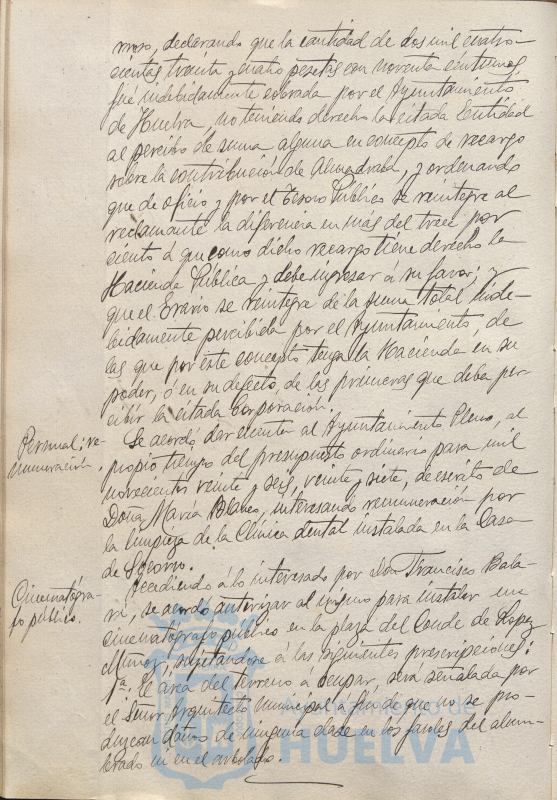 moso, declarando que la cantidad de dos mil cuatro-
cientas treinta y cuatro pesetas con noventa céntimos
fué indebidamente cobrada por el Ayuntamiento
de Huelva, no teniendo derecho la citada Entidad
al percibo de suma alguna en concepto de recargo
sobre la contribución de Almadraba, y ordenando
que de oficio y por el Tesoro Público se reintegre al
reclamante la diferencia en más del trece por
ciento á que como dicho recargo tiene derecho la
Hacienda Pública y debe ingresar á su favor; y
que el Erario se reintegre de la suma total inde-
bidamente percibida por el Ayuntamiento, de
las que por este concepto tenga la Hacienda en su
poder, ó en su defecto, de las primeras que deba per-
cibir la citada Corporación.
Personal; re-
muneración.
Se acordó dar cuenta al Ayuntamiento Pleno, al
propio tiempo del presupuesto ordinario para mil
novecientos veinte y seis, veinte y siete, de escrito de
Doña María Blanco, interesando remuneración por
la limpieza de la Clínica dental instalada en la Casa
de Socorro.
Cinematógra-
fo público.
Accediendo á lo interesado por Don Francisco Bala-
, se acordó autorizar al mismo para instalar un
cinematógrafo público en la plaza del Conde de Lopez
Muñoz, sujetándose á las siguientes prescripciones:
1ª. El area del terreno a ocupar, sera señalada por
el Señor Arquitecto Municipal a fin de que no se pro-
duzcan daños de ninguna clase en los faroles del alum-
brado ni en el arbolado.
HUELVA